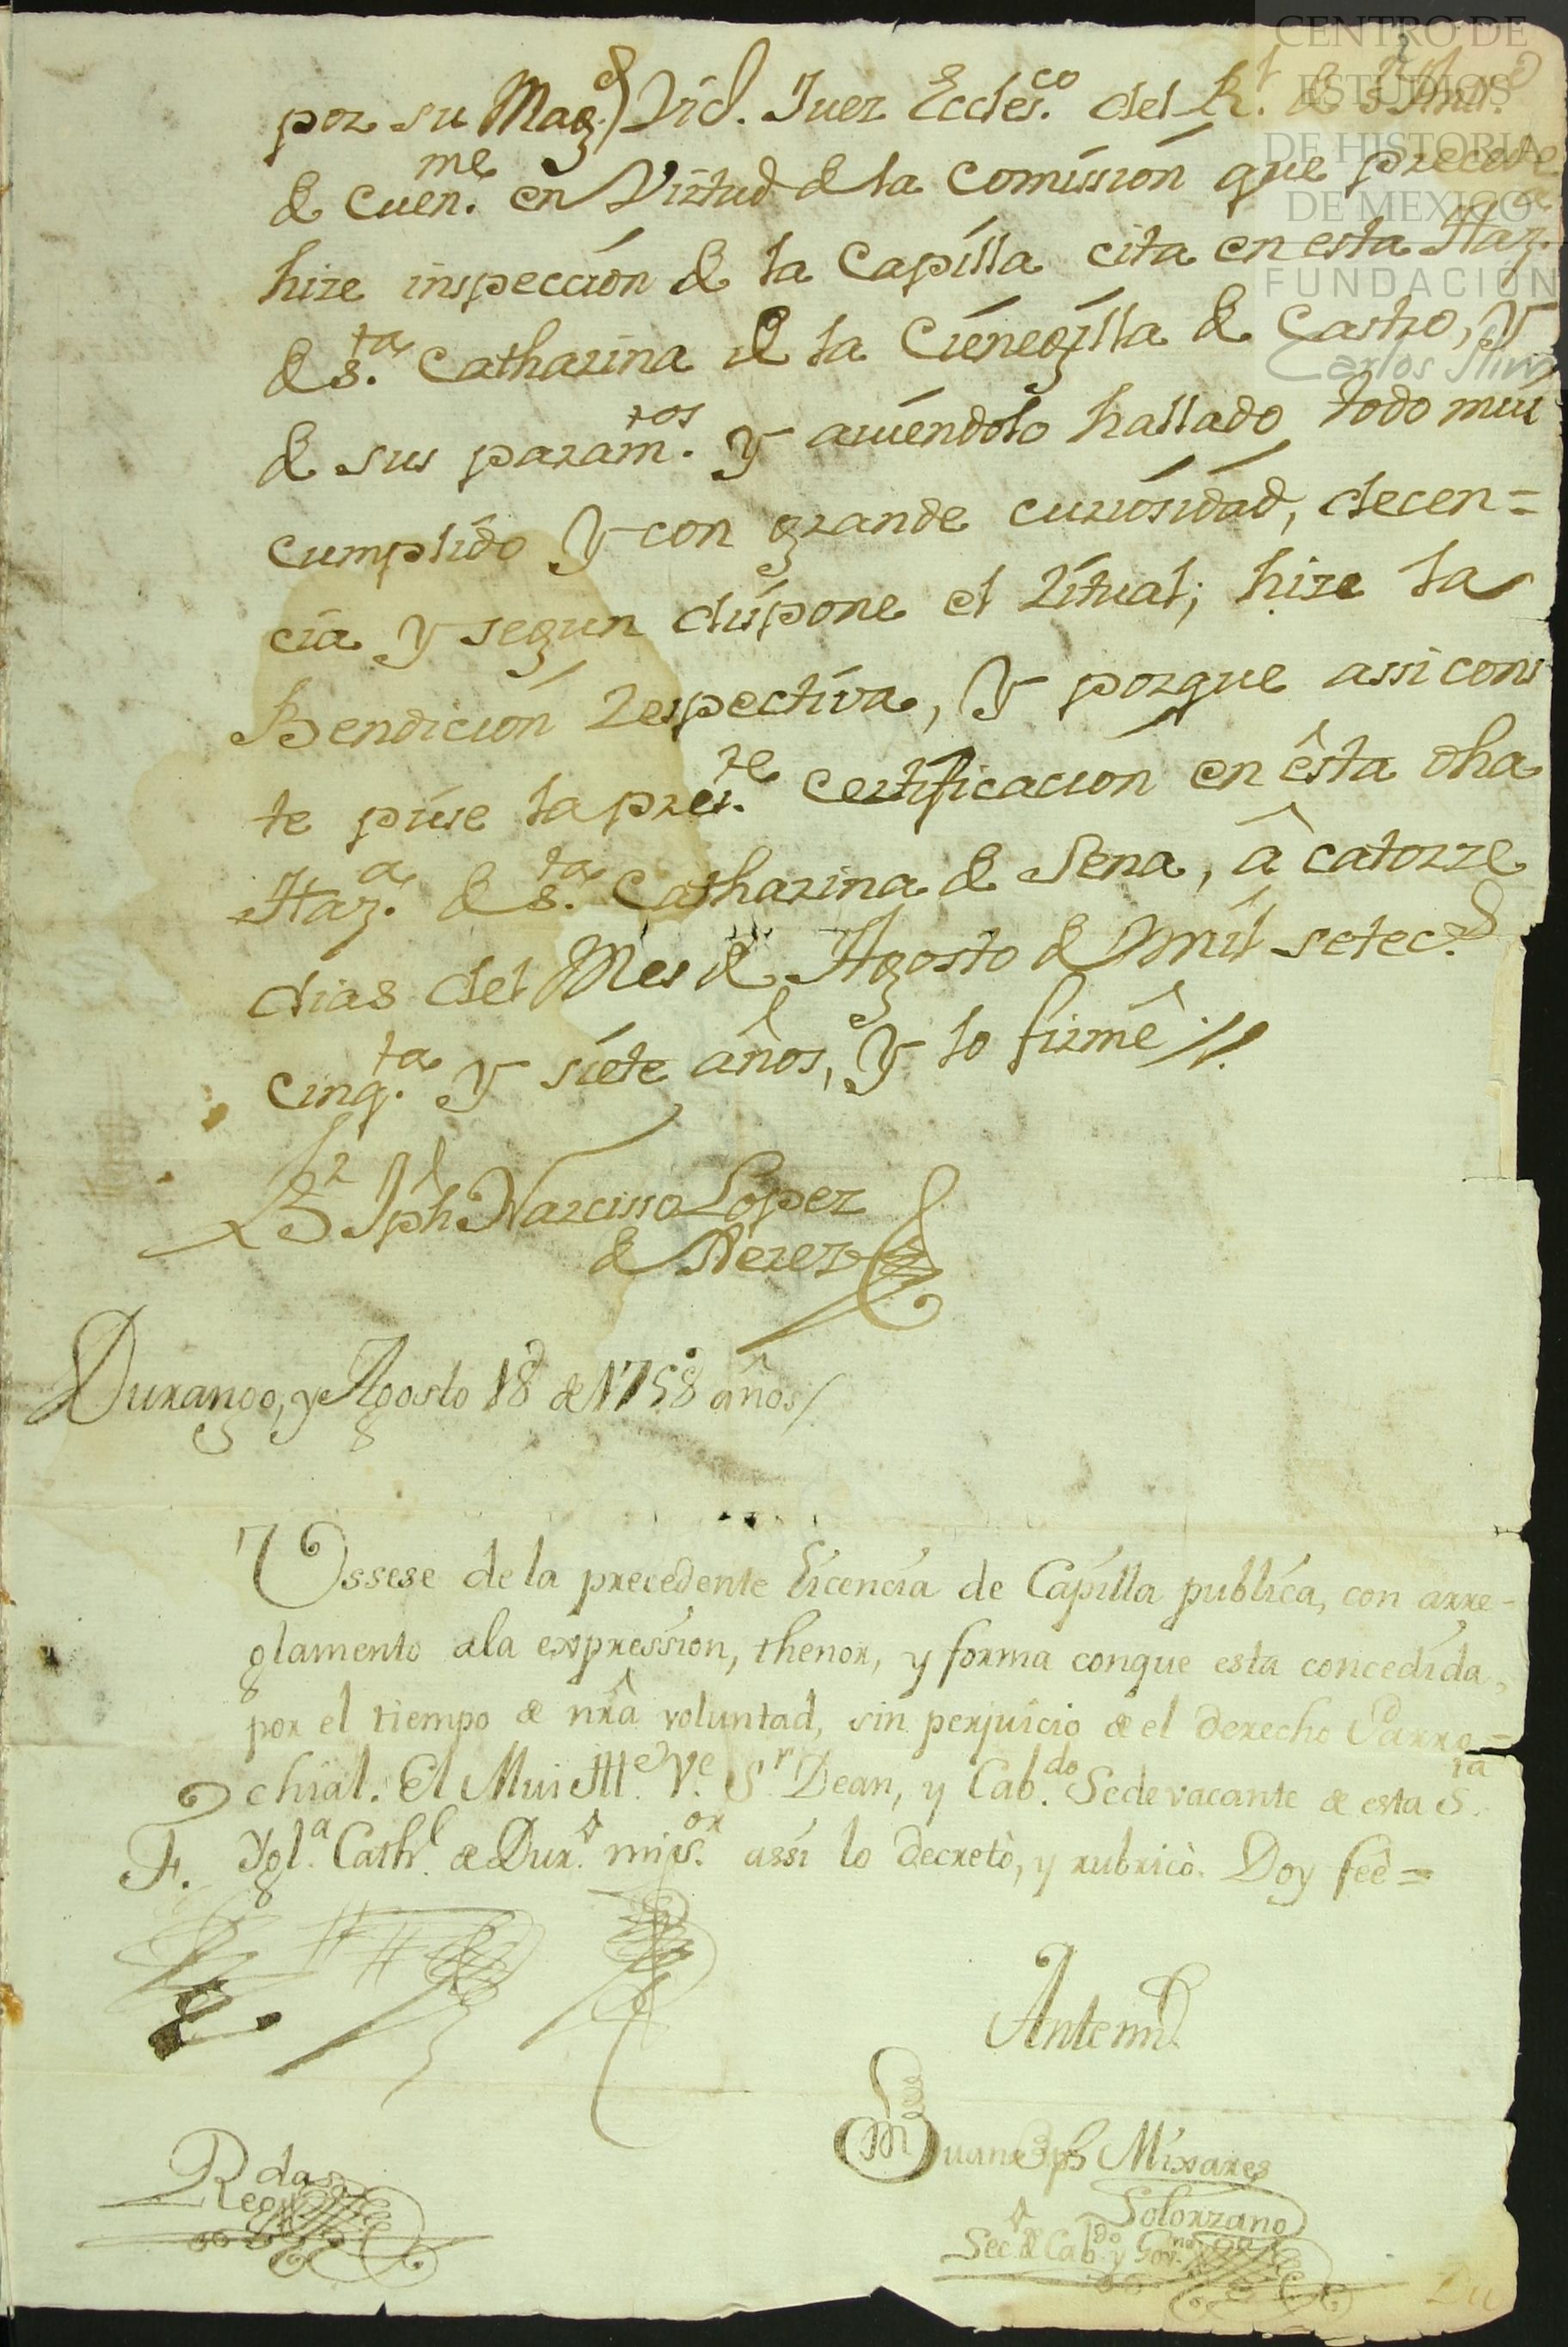 por su Mag.d) Vic.o Juez Ecclés.co del R.l de S.n
de Cuen.me en Virtud de la Comission que precede
hize inspeccion de la Capilla cita en esta Haz.da
de S.ta Catharina de la Cieneguilla de Castro, y
de sus param.tos y aviendolo hallado todo mui
cumplido y con grande curiosidad, decen=
cia y segun dispone el Ritual; hize la
Bendicion Respectiva, y porque assi cons
te puse la pres.te certificacion en êsta dha
Haz.a de S.ta Catharina de Sena, â catorze
dias del Mes de Agosto de Mil setec.s
cinq.ta y siete años, y lo firmê //.
B.r Jph Narcisso Lopez
de Nerez
Durango, y Agosto 18 de 1758 años/
Ussese de la precedente Licencia de Capilla publica, con arre-
glamento ala expression, thenor, y forma conque esta concedida,
por el tiempo de nrâ voluntad, sin perjuicio de el derecho Parro=
chial. El Mui Ill.e V.e S.r Dean, y Cab.do Sede vacante de esta S.ta
F. Ygl.a Cath.l de Dur.o mi s.or assi lo decretò, y rubricò. Doy feê=
Antemi.
Juan Jph Mixares
Solorzano
Sec.o de Cab.do y Gov.no
R.das
Reg
Du
CENTRO DE
ESTUDIOS
DE HISTORIA
DE MEXICO
FUNDACIÓN
Carlos Slim